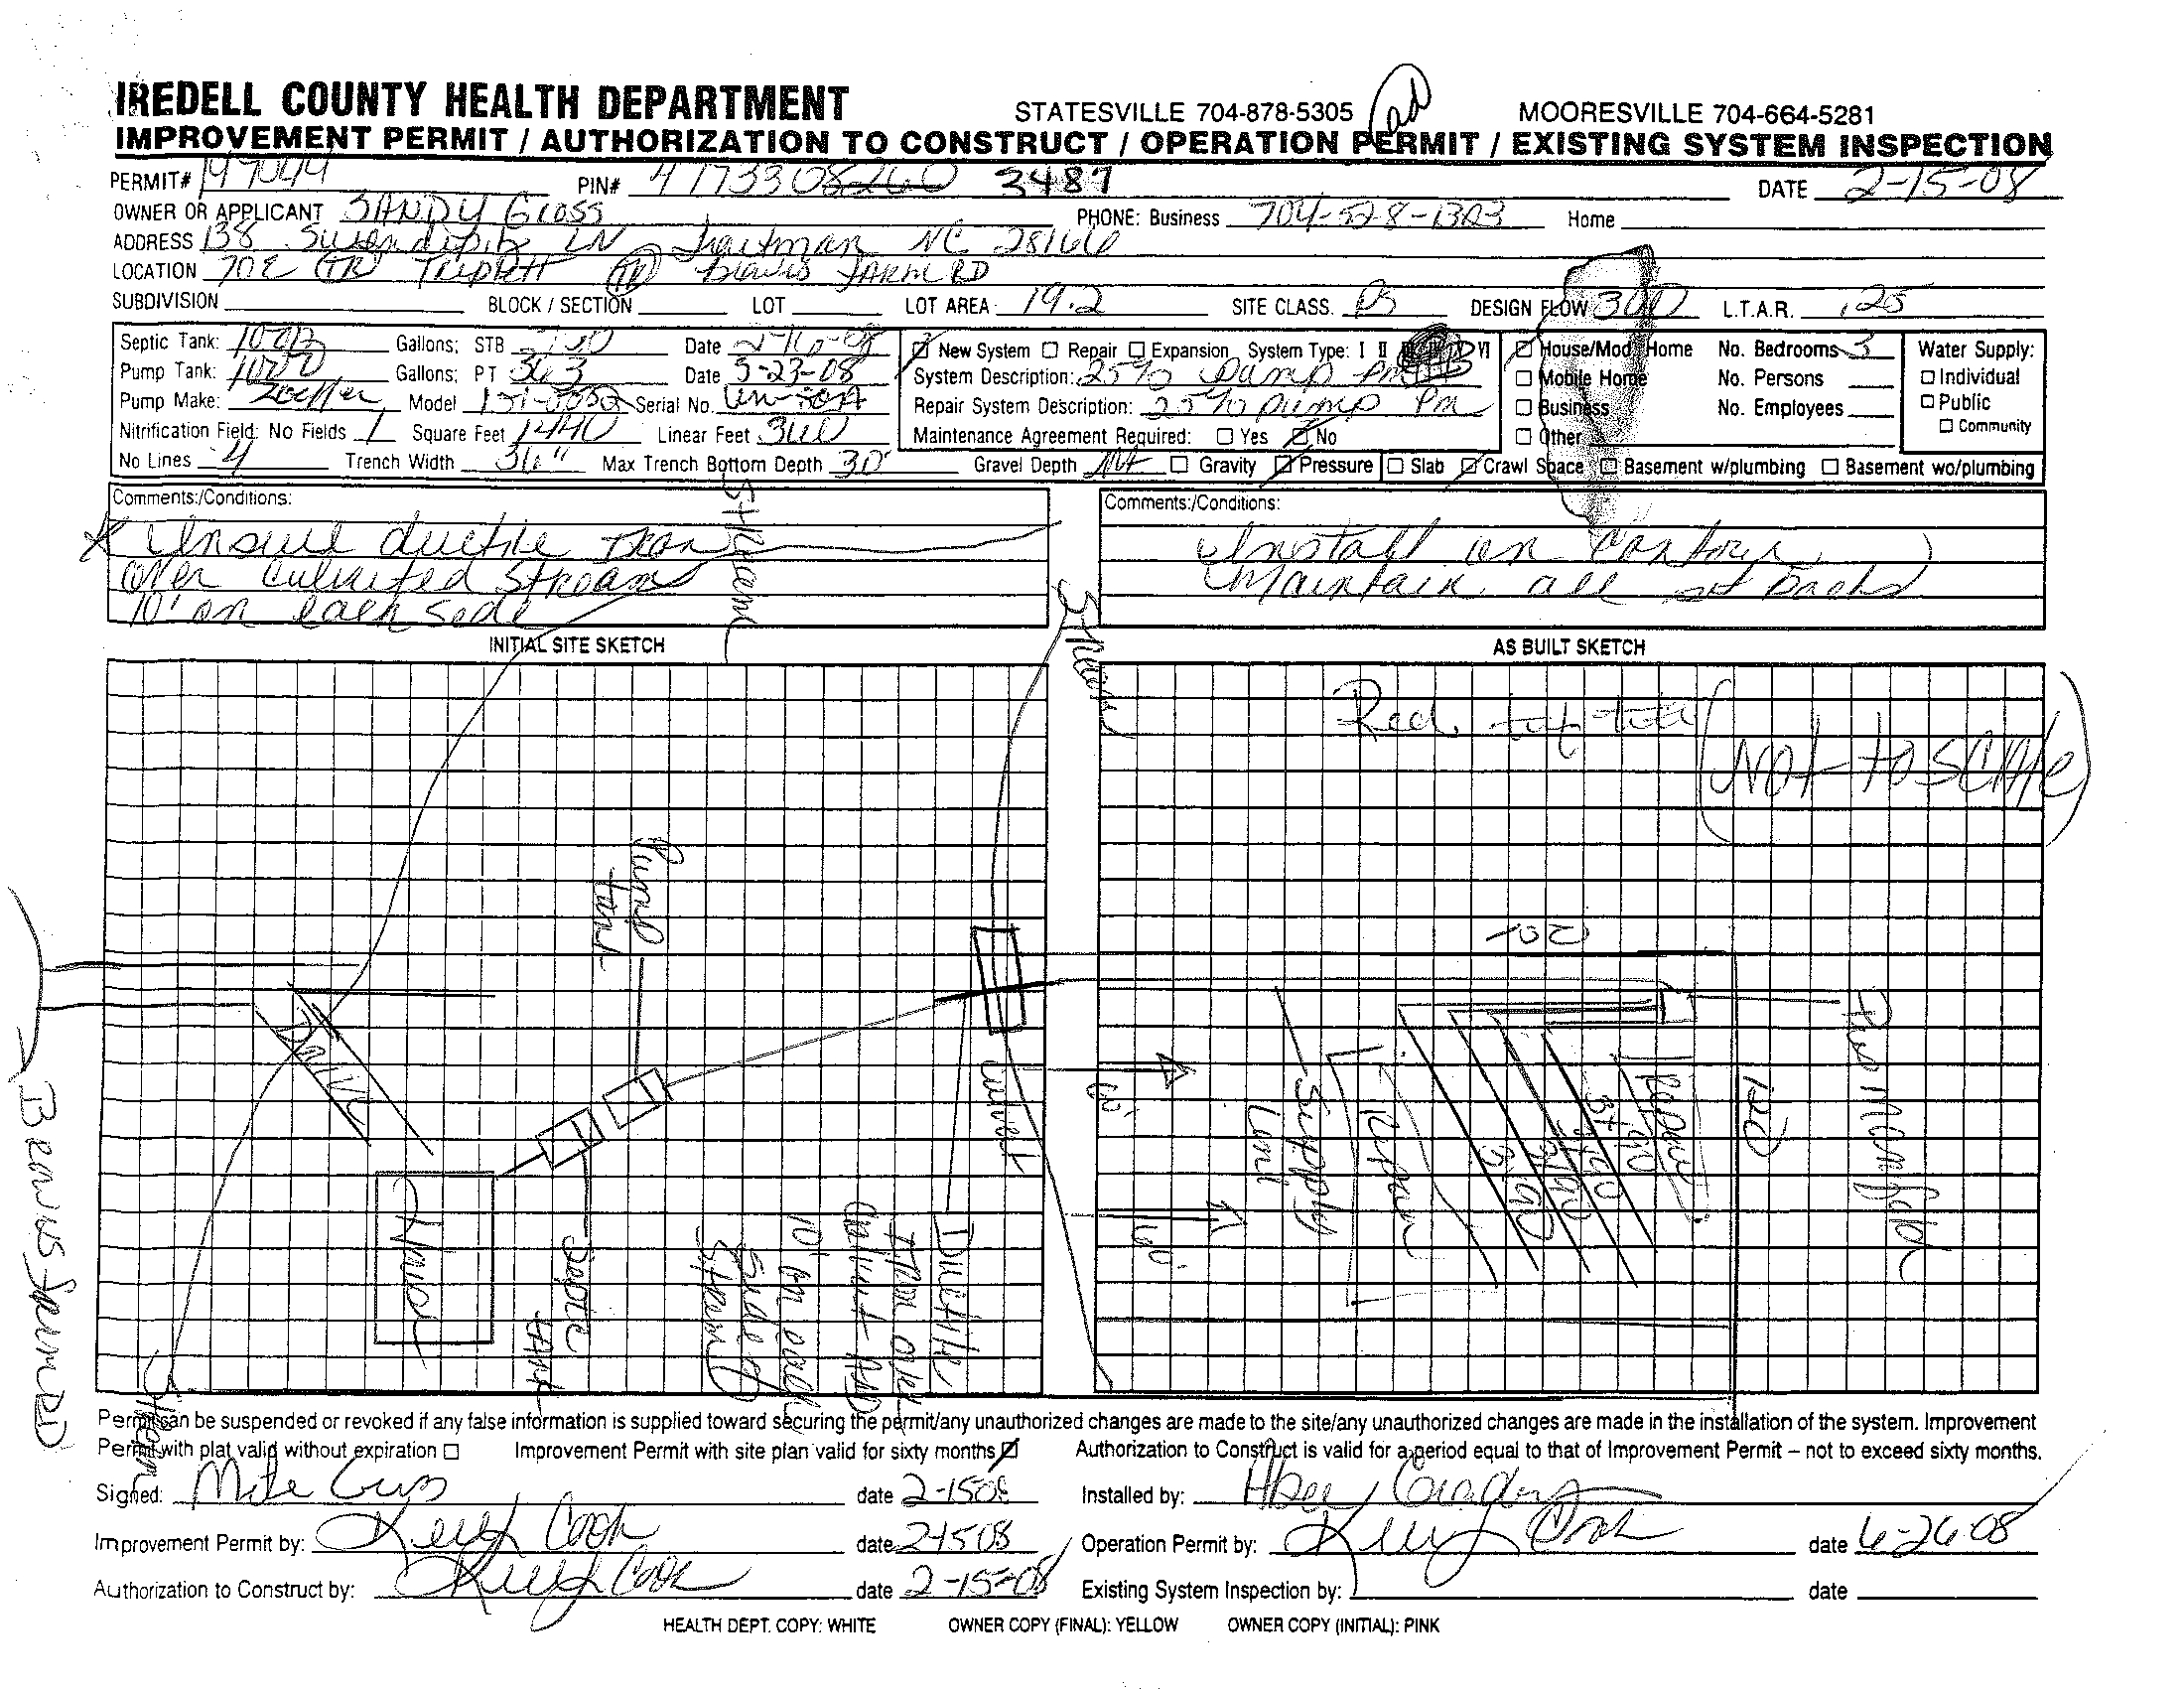 IREDELL COUNTY HEALTH DEPARTMENT STATESVILLE 704-878-5305 MOORESVILLE 704-664-5281
IMPROVEMENT PERMIT / AUTHORIZATION TO CONSTRUCT / OPERATION PERMIT / EXISTING SYSTEM INSPECTION
PERMIT# PIN# 3487 DATE 2-15-08
OWNER OR APPLICANT SANDY GROSS PHONE: Business 704-528-1323 Home
ADDRESS 138 LN NC 28166
LOCATION 70E TR Triplett TR FARM RD
SUBDIVISION BLOCK / SECTION LOT LOT AREA 19.2 SITE CLASS. PS DESIGN FLOW 360 L.T.A.R. .25
Septic Tank: 1000 Gallons; STB Date
Pump Tank: 1000 Gallons; PT 363 Date 5-23-08
Pump Make: Zoeller Model Serial No.
Nitrification Field: No Fields 1 Square Feet 1440 Linear Feet 360
No Lines 4 Trench Width 36" Max Trench Bottom Depth 30" Gravel Depth NA Gravity Pressure Slab Crawl Space Basement w/plumbing Basement wo/plumbing
New System Repair Expansion System Type: I II III IV V VI
System Description: 25% Pump PM
Repair System Description: 25% pump PM
Maintenance Agreement Required: Yes No
House/Mod. Home No. Bedrooms 3
Mobile Home No. Persons
Business No. Employees
Other
Water Supply:
Individual
Public
Community
Comments:/Conditions:
ductile Iron
over culverted stream
10' on each side
Comments:/Conditions:
Install on Contour
Maintain all set backs
Stream
Stream
INITIAL SITE SKETCH
AS BUILT SKETCH
Red
(NOT to SCALE)
Pump
tank
Drive
House
Septic
tank
Culvert
Ductile
Iron over
Culvert AND
10' on each
Side of
Stream
Stream
60'
60'
Supply
Line
Repair
3 + 90
3 + 90
Repair
120'
120
RD
Permit can be suspended or revoked if any false information is supplied toward securing the permit/any unauthorized changes are made to the site/any unauthorized changes are made in the installation of the system. Improvement
Permit with plat valid without expiration Improvement Permit with site plan valid for sixty months Authorization to Construct is valid for a period equal to that of Improvement Permit – not to exceed sixty months.
Signed: date 2-15-08 Installed by:
Improvement Permit by: Kelly Cook date 2-15-08 Operation Permit by: Kelly Cook date 6-26-08
Authorization to Construct by: Kelly Cook date 2-15-08 Existing System Inspection by: date
HEALTH DEPT. COPY: WHITE OWNER COPY (FINAL): YELLOW OWNER COPY (INITIAL): PINK